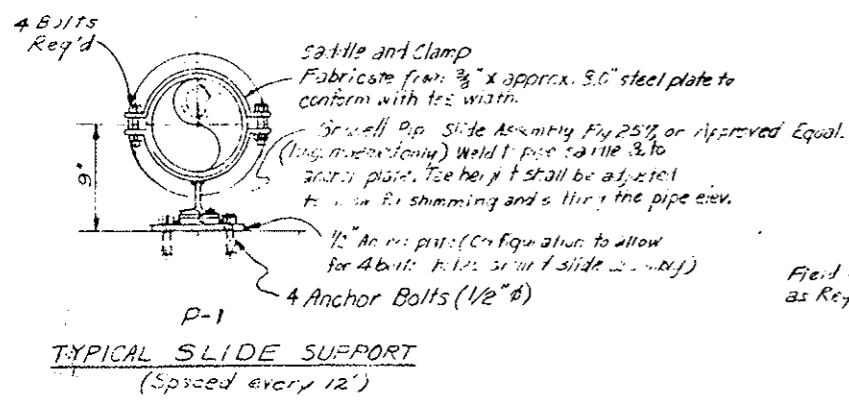 4 Bolts
Req'd
Saddle and Clamp
Fabricate from 3/8" x approx. 8.0" steel plate to
conform with tee width.
Slide Assembly Fig 257, or Approved Equal.
Weld pipe saddle & to
anchor plate. Tee height shall be adjusted
for shimming and setting the pipe elev.
9"
1/2" Anchor plate (Configuration to allow
for 4 bolt holes slide assembly)
4 Anchor Bolts (1/2" ϕ)
Field
as Req
P-1
TYPICAL SLIDE SUPPORT
(Spaced every 12')